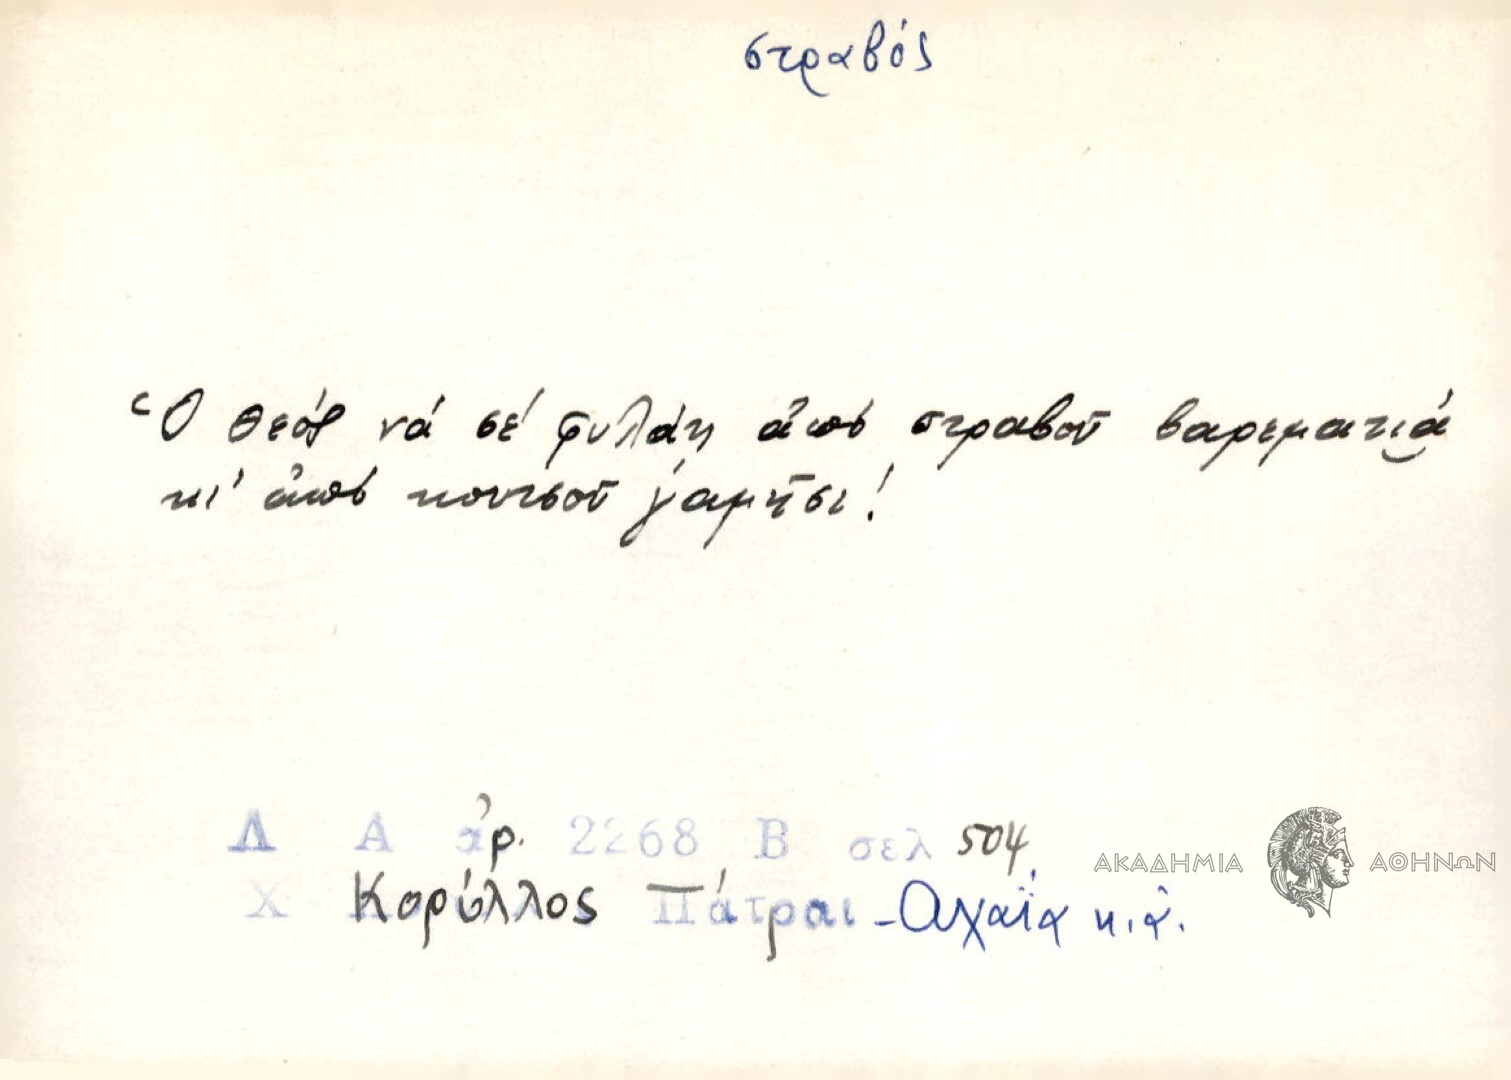 στραβός
Ὁ θεός νά σέ φυλάη ἀπό στραβοῦ βαρεματιά
κι' ἀπό κουτσοῦ γαμήσι!
Λ Α ἀρ. 2268 Β σελ 504
Χ Κορύλλος Πάτραι - Ἀχαΐα κ.ἀ.
ΑΚΑΔΗΜΙΑ ΑΘΗΝΩΝ